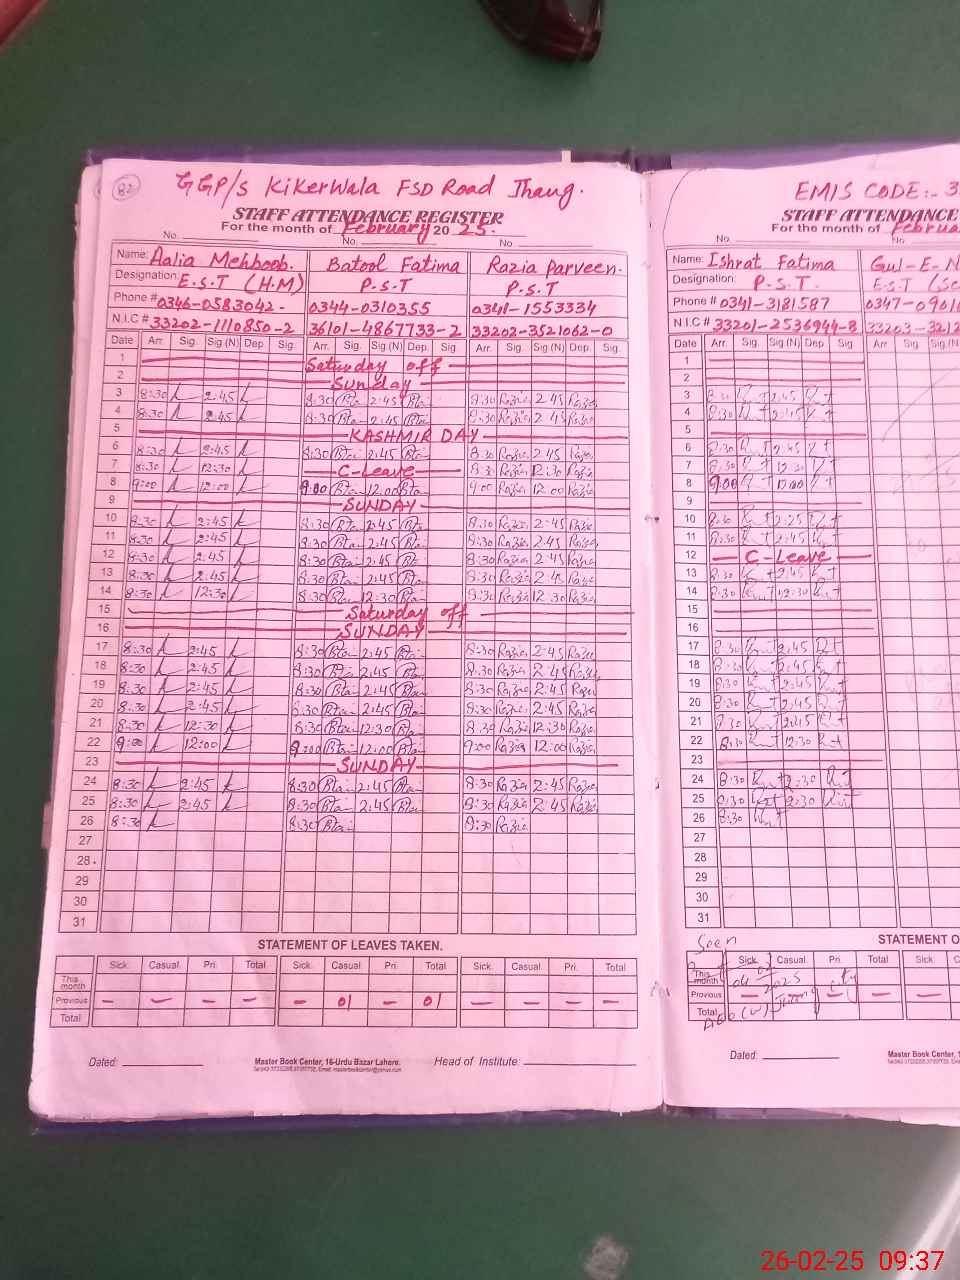 82
GGP/s KiKerWala FSD Road Jhang.
STAFF ATTENDANCE REGISTER
For the month of February 2025.
No. No. No.
Name: Aalia Mehboob. Batool Fatima Razia Parveen.
Designation: E.S.T (H.M) P.S.T P.S.T
Phone # 0346-0583042- 0344-0310355 0341-1553334
N.I.C # 33202-1110850-2 36101-4867733-2 33202-3521062-0
Date Arr. Sig. Sig.(N) Dep. Sig. Arr. Sig. Sig.(N) Dep. Sig Arr. Sig. Sig.(N) Dep. Sig.
1 Saturday off
2 Sunday
3 8:30 2:45 8:30 2:45 8:30 Razia 2:45 Razia
4 8:30 2:45 8:30 2:45 8:30 Razia 2:45 Razia
5 KASHMIR DAY
6 8:30 2:45 8:30 2:45 8:30 Razia 2:45 Razia
7 8:30 12:30 C-Leave 8:30 Razia 12:30 Razia
8 9:00 12:00 9:00 12:00 9:00 Razia 12:00 Razia
9 SUNDAY
10 8:30 2:45 8:30 2:45 8:30 Razia 2:45 Razia
11 8:30 2:45 8:30 2:45 8:30 Razia 2:45 Razia
12 8:30 2:45 8:30 2:45 8:30 Razia 2:45 Razia
13 8:30 2:45 8:30 2:45 8:30 Razia 2:45 Razia
14 8:30 12:30 8:30 12:30 8:30 Razia 12:30 Razia
15 Saturday off
16 SUNDAY
17 8:30 2:45 8:30 2:45 8:30 Razia 2:45 Razia
18 8:30 2:45 8:30 2:45 8:30 Razia 2:45 Razia
19 8:30 2:45 8:30 2:45 8:30 Razia 2:45 Razia
20 8:30 2:45 8:30 2:45 8:30 Razia 2:45 Razia
21 8:30 12:30 8:30 12:30 8:30 Razia 12:30 Razia
22 9:00 12:00 9:00 12:00 9:00 Razia 12:00 Razia
23 SUNDAY
24 8:30 2:45 8:30 2:45 8:30 Razia 2:45 Razia
25 8:30 2:45 8:30 2:45 8:30 Razia 2:45 Razia
26 8:30 8:30 8:30 Razia
27
28
29
30
31
STATEMENT OF LEAVES TAKEN.
Sick. Casual. Pri. Total Sick. Casual. Pri. Total Sick. Casual. Pri. Total
This month
Previous - - - - - 01 - 01 - - - -
Total
Dated: Master Book Center, 16-Urdu Bazar Lahore. Head of Institute:
EMIS CODE:- 3
STAFF ATTENDANCE
For the month of Februa
No. No.
Name: Ishrat Fatima Gul-E-N
Designation: P.S.T. E.S.T (Sc
Phone # 0341-3181587 0347-0901
N.I.C # 33201-2536944-8 33203-3212
Date Arr. Sig. Sig.(N) Dep. Sig. Arr. Sig. Sig.(N
1
2
3 8:30 2:45
4 8:30 2:45
5
6 8:30 2:45
7 8:30 12:30
8 9:00 12:00
9
10 8:30 2:25
11 8:30 2:45
12 C-Leave
13 8:30 2:45
14 8:30 12:30
15
16
17 8:30 2:45
18 8:30 2:45
19 8:30 2:45
20 8:30 2:45
21 8:30 2:45
22 8:30 12:30
23
24 8:30 2:30
25 8:30 2:30
26 8:30
27
28
29
30
31
Seen
STATEMENT O
Sick. Casual. Pri. Total Sick. C
This month
2025
Previous - - - - -
Jhang City
Total
Dated: Master Book Center, 1
26-02-25 09:37